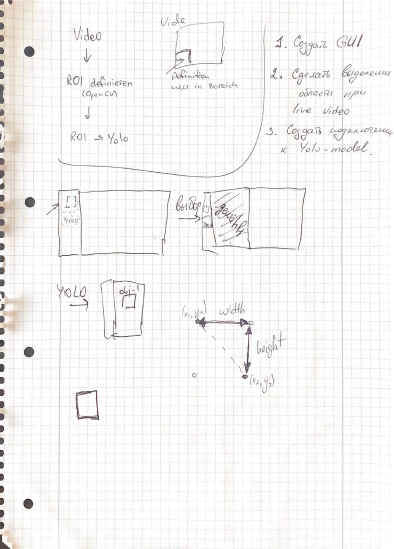 Video
ROI definieren
(OpenCV)
ROI → Yolo
Vide
Definition
in Bereich
1. Создать GUI
2. Сделать выделение
области при
live video
3. Создать подключение
к Yolo-model.
YOLO
выбор
YOLO
obj.1
(x₁,y₁)
width
height
(x₂,y₂)